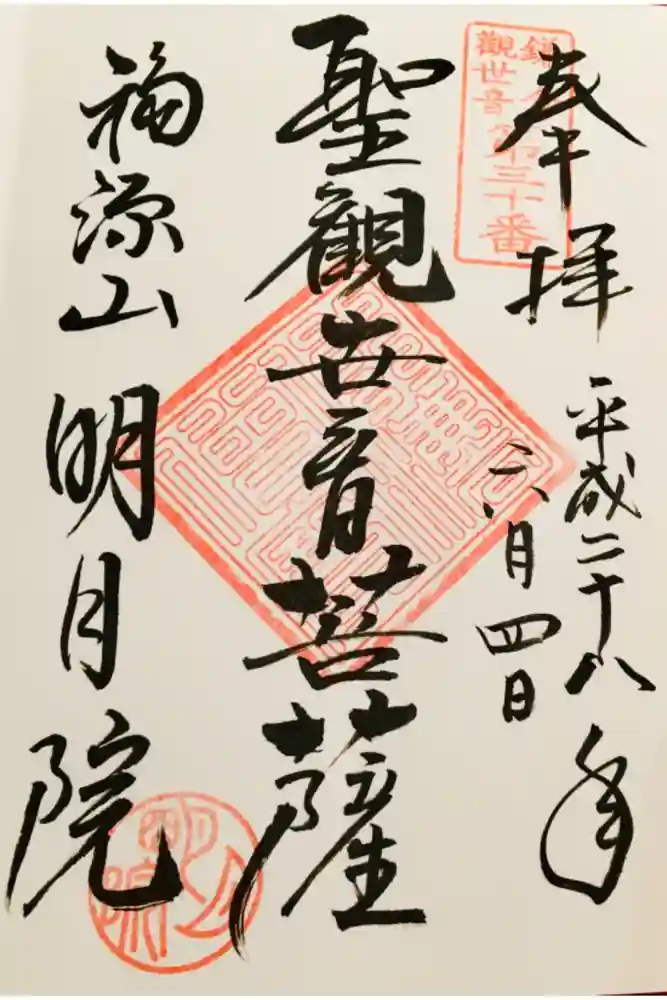 奉拝
平成二十八年
六月四日
鎌倉
觀世音第三十番
聖觀世音菩薩
福源山
明月院